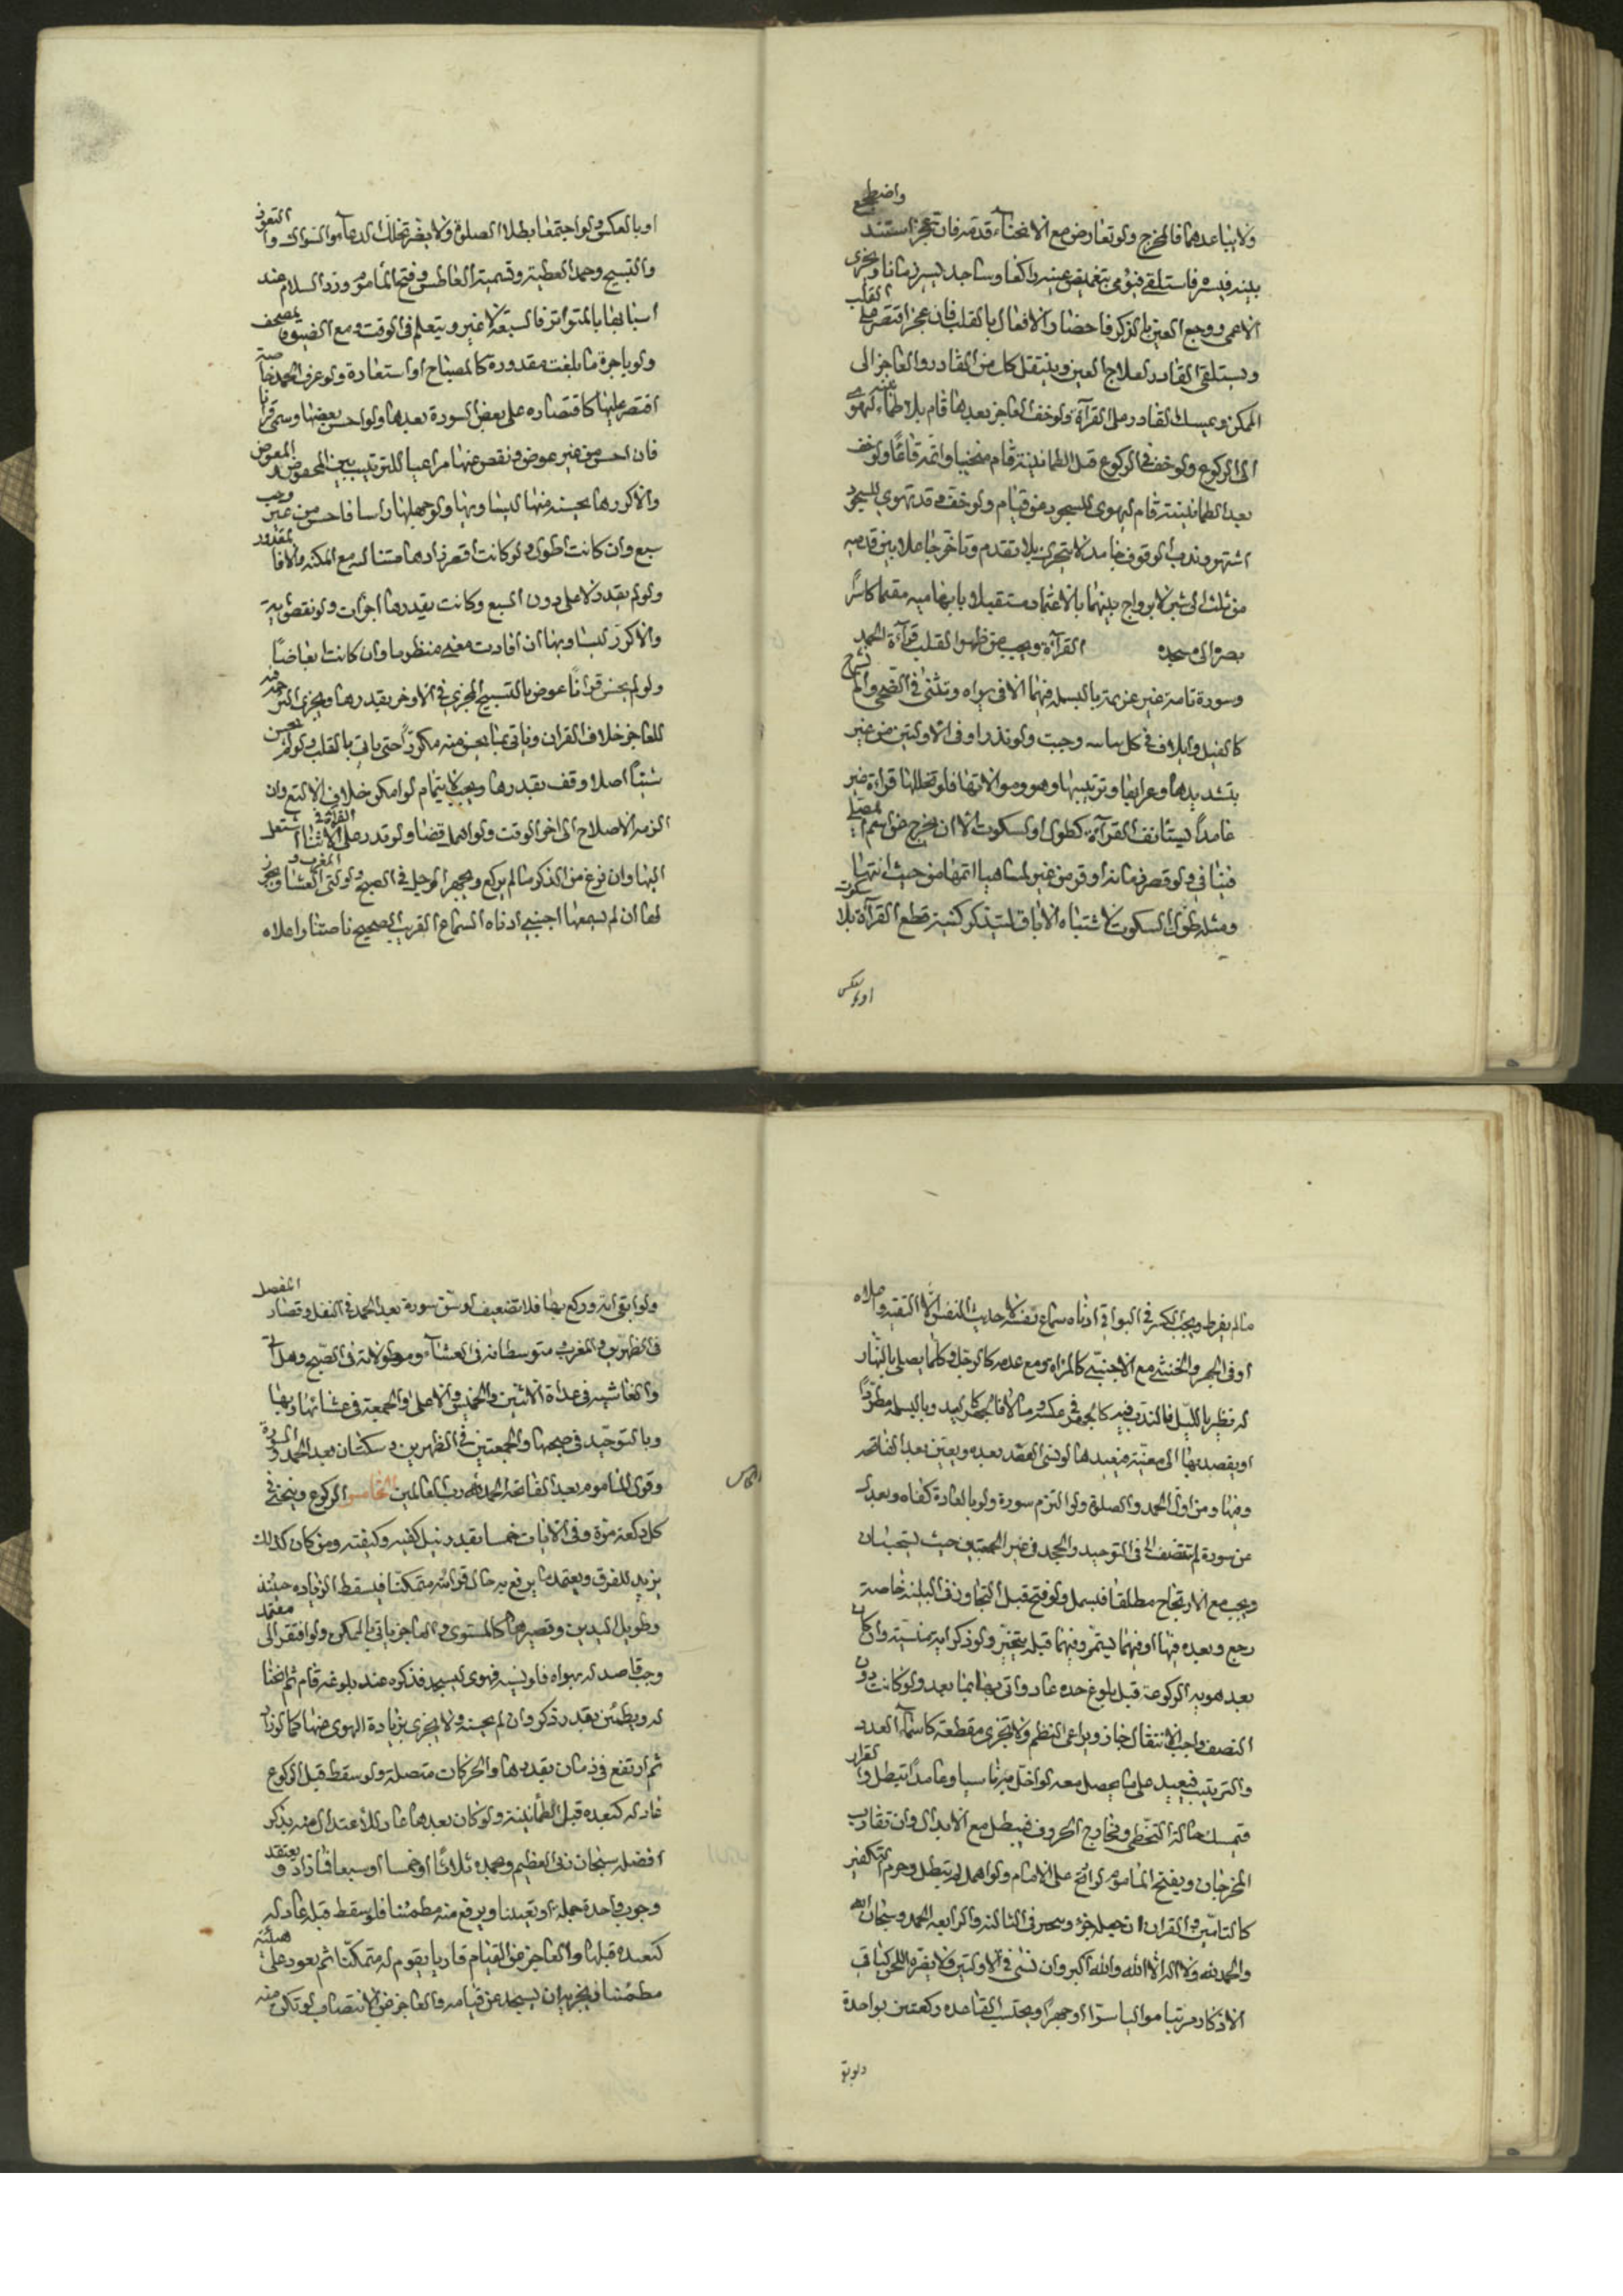 ولا يباعدهما فالمخرج ولو تعارض مع الانحناء قدمه فان عجز استند واضطجع
بينه فيسره فاستلقى فيومى بتغميض عينيه راكعا وساجد يسير زمانا ويجزى
الاعمى ووجع العين بالذكر فاحضا والافعال بالقلب فان عجز اقتصر على القلب
ويستلقى القادر لعلاج العين وينتقل كل من القادر والعاجز الى
الممكن ويمسك القادر على القرآة ولو خف العاجز بعدها قام بلا طمأنينه لهوى
الى الركوع ولو خف فى الركوع قبل الطمانينة قام منحنيا واتمه قائما ولو خف
بعد الطمانينة قام ليهوى للسجود من قيام ولو خف وقد تهوى للسجود
اشتهر وندب الوقوف خامدا لا يتحرك بلا تقدم وتاخر جاعلا بين قدميه
من ثلث الى شبر لا يراوح بينهما بالاعتماد مستقبلا بابهاميه مقيما كاسرا
بصره الى مسجده القرآة ويجب عن ظهر القلب قرآءة الحمد
وسورة تامة غير عزيمة بالبسملة فيهما الا فى براه وتثنى فى الضحى والم نشرح
كالفيل ولايلاف فى كل ساسه وجبت ولو نذرا وفى الاوليين من غير
بتشديدها واعرابها وترتيبها وهو وموالاتها فلو تخللها قراءة غير
عامدا يستانف القرآة كطول السكوت الا ان يخرج عن اسم المصلى
فينافى ولو قصر زمانه او قرء من غير لمساهيا اتمها من حيث انتهى
ومثله طول السكوت لاشتباه الاباق لتيذكر كنية قطع القرآة بلا سكوت
او بالعكس
او بالعكس ولو اجتمعا بطلا الصلوة ولا يضر تخلل الدعاء والسؤال والتعوذ
والتسبيح وحمد العطية وتسمية العاطس وفتح المأموم ورد السلام عند
اسبابها بالمتواتر فالسبعة لا غير ويتعلم فى الوقت ومع الضيق بمصحف
ولو باجرة ما بلغت مقدورة كالمصباح او استعارة ولو عرف الحمد خاصة
اقتصر عليها كاقتصاره على بعض السورة بعدها ولو احسن بعضها وسمى قرآنا
فان احسن من غير عوض ونقص عنها مراعيا للترتيب بين المحفوض والمعوض
والا كررها بحسنه منها ليساويها ولو جهلها راسا فاحسن من غير وجب
سبع وان كانت اطول ولو كانت اقصر زادها متتاليه مع المكنه والا فالمقدور
ولو لم يقدر الا على دون السبع وكانت بقدرها اجزات ولو نقص به
والا كرر ليساويها ان افادت معنى منظوما وان كانت ابعاضا
ولو لم يحسن قرانا عوض بالتسبيح المجزى فى الاوخر بقدرها ويجزى الترجمه
للعاجز خلاف القران وياتى بما يحسن منه مكررا حتى ياتى بالقلب ولو لم يحسن
شيئا اصلا وقف بقدرها ويجب الايتمام لو امكن خلاف الالتع وان
الزمه الاصلاح الى اخر الوقت ولو اهمل قضا ولو قدر على القرآة فى الاثناء اشتغل
اليها وان فرغ من الذكر ما لم يركع ويجهر الرجل فى الصبح واولتى المغرب والعشا ويجوز
لها ان لم يسمعها اجنبى ادناه السماع القريب الصحيح ناصتا واعلاه
ما لم يفرط ويجب السر فى البواقى ادناه سماع نفسه لا حديث النفس الا التقية واعلاه
او فى الجهر والخنثى مع الاجنبى كالمراه ومع عدمه كالرجل وكلما يصلى بالنهار
له نظير بالليل فالندب فيه كالجهر فى عكسه وما لا فالجهر كالعيد وبالبسملة مطلقا
او يقصد بها الى معينة فيعيدها لو نسى القصد بعده ويعتبر بعد الفاتحه
ومنها ومن اول الحمد والصلوة ولو التزم سورة ولو بالعادة كفاه ويعدل
عن سورة لم تنتصف الا فى التوحيد والجحد فى غير الجمعتين حيث يستحبان
ويجب مع الارتجاح مطلقا فيبسمل ولو فتح قبل التجاوز فى البينه خاصة
رجع وبعده فيها او فيهما يستمر وفيهما قبله يتخير ولو ذكر اية منسية وان كان
بعد هويه الركوعه قبل بلوغ حده عاد واتى بها بما بعد ولو كانت دون
النصف واحب الانتقال جاز ويراعى النظم ولا تجزى مقطعة كاسماء العدد
والترتيب فيعيد على ما يحصل معه لو اخل به ناسيا وعامدا تبطل والقرار
فيمسك حالة التخطى ومخارج الحروف فيبطل مع الابدال وان تقارب
المخرجان ويفتح المأموم لو ارتج على الامام ولو اهمل لم تبطل وحرم التكفير
كالتأمين والقران ان جعله جزء وتجزى فى الثالثه والرابعه الحمد وسبحان الله
والحمد لله ولا اله الا الله والله اكبر وان نسى فى الاوليين ولا يضره اللحن كباقى
الاذكار مرتبا مواليا سرا او جهرا ويحتسب القاعده ركعتين بواحدة
ولو بقى
ولو ابقى اية وركع بها فلا تضعيف او شق سورة بعد الحمد فى النفل وقصار المفصل
فى الظهرين والمغرب متوسطاته فى العشاء ومطولاته فى الصبح وهل اتى
والغاشيه فى غداة الاثنين والخميس والاعلى والجمعة فى عشائها وبها
وبالتوحيد فى صبحها والجمعتين فى الظهرين وسكتتان بعد الحمد والسورة
وقول المأموم بعد الفاتحه الحمد لله رب العالمين الخامس الركوع وينحنى فى
الخامس
كل ركعة مرة وفى الايات خمسا بقدر نيل كفيه ركبتيه ومن كان كذلك
يزيد للفرق ويعتمد ما يرفع به حال قرائته متمكنا فيسقط الزياده حينئذ
وطويل اليدين وقصيرهما كالمستوى والعاجز ياتى بالممكن ولو افتقر الى معتمد
وجب قاصد له بهواه فلو نسيه فهوى ليسجد فذكره عند بلوغه قام ثم انحنا
له ويطمئن بقدر ذكره وان لم يحسنه ولا يجزى بزيادة الهوى عنها كما لو زاد
ثم ارتفع فى زمان بقدرها والحركات متصلة ولو سقط قبل الركوع
عاد له كبعده قبل الطمأنينة ولو كان بعدها عاد للاعتدال منه بذكر
افضله سبحان ربى العظيم وبحمده ثلاثا او خمسا او سبعا فما زاد ويعتقد
وجوب واحدة جملة او تعيينا ويرفع منه مطمئنا فلو سقط قبله عاد له
كبعده قبلها والعاجز عن القيام قاريا يقوم له متمكنا ثم يعود على هيئته
مطمئنا ويجزيه ان يسجد عن قيامه والعاجز عن الانتصاب لو تكلن منه